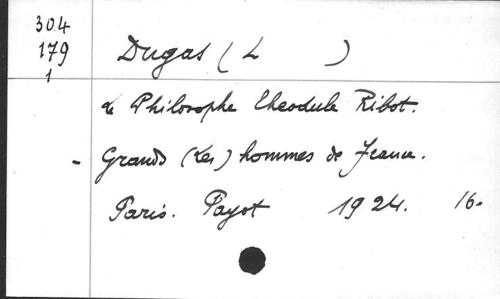 304
179
1
Dugas (L )
Le Philosophe Theodule Ribot.
- Grands (Les) hommes de France.
Paris. Payot 1924. 16.